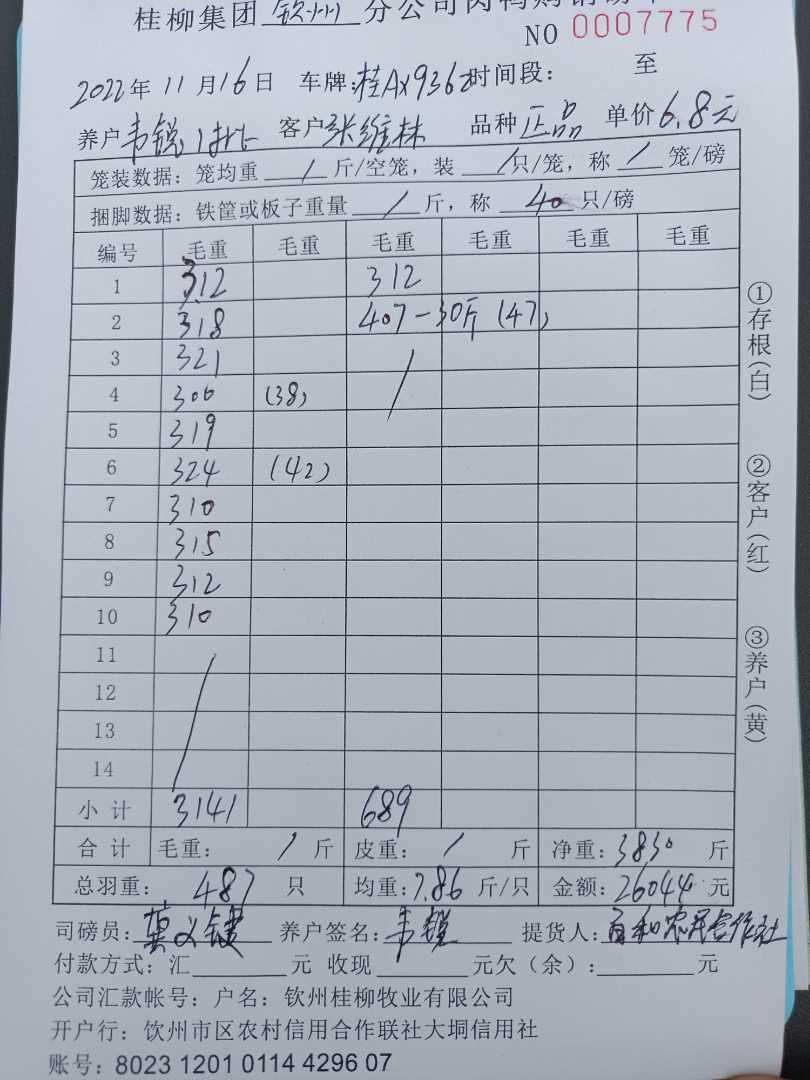 桂柳集团 钦州 分公司肉鸭购销磅单
NO 0007775
2022年 11月16日 车牌:桂AX9362 时间段: 至
养户 韦锐 客户 张维林 品种 正品 单价 6.8元
笼装数据: 笼均重 / 斤/空笼, 装 / 只/笼, 称 / 笼/磅
捆脚数据: 铁筐或板子重量 / 斤, 称 40 只/磅
编号 毛重 毛重 毛重 毛重 毛重 毛重
1 312 312
2 318 407-30斤 (47)
3 321 /
4 300 (38)
5 319
6 324 (42)
7 310
8 315
9 312
10 310
11 /
12
13
14
小计 3141 689
合计 毛重: / 斤 皮重: / 斤 净重: 3830 斤
总羽重: 487 只 均重: 7.86 斤/只 金额: 26044 元
司磅员: 莫义健 养户签名: 韦锐 提货人: 百和农民合作社
付款方式: 汇 元 收现 元欠(余): 元
公司汇款帐号: 户名: 钦州桂柳牧业有限公司
开户行: 钦州市区农村信用合作联社大垌信用社
账号: 8023 1201 0114 4296 07
①存根(白)
②客户(红)
③养户(黄)